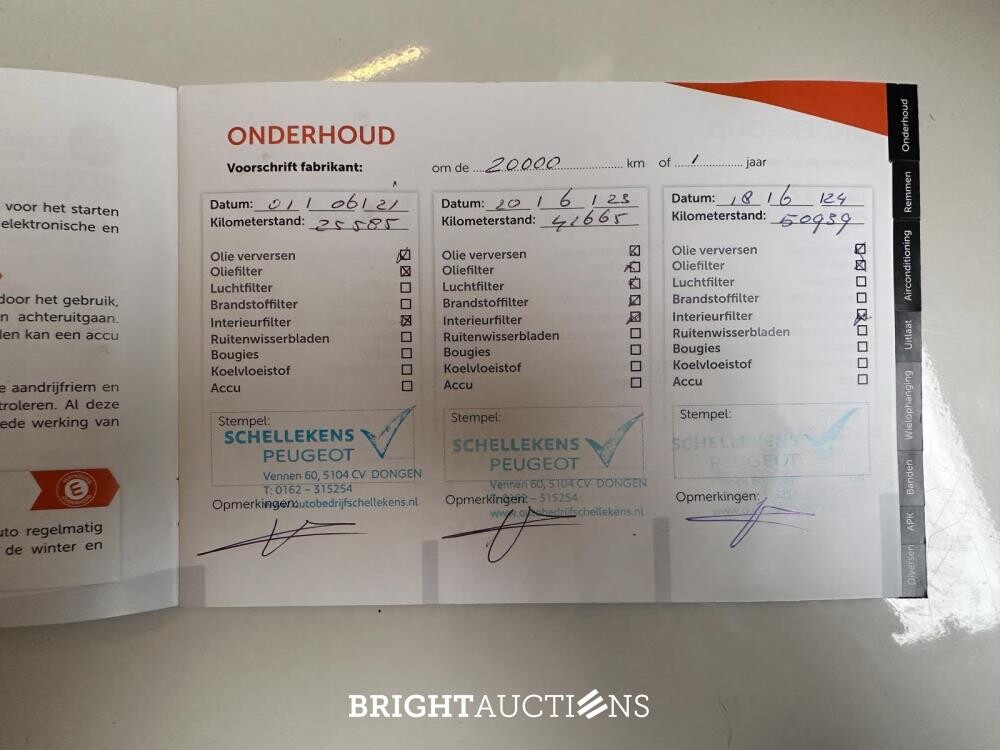 voor het starten
elektronische en
door het gebruik,
n achteruitgaan.
len kan een accu
e aandrijfriem en
troleren. Al deze
ede werking van
uto regelmatig
de winter en
ONDERHOUD
Voorschrift fabrikant: om de 20000 km of 1 jaar
Datum: 01 / 06 / 21
Kilometerstand: 25585
Olie verversen
Oliefilter
Luchtfilter
Brandstoffilter
Interieurfilter
Ruitenwisserbladen
Bougies
Koelvloeistof
Accu
Stempel:
SCHELLEKENS
PEUGEOT
Vennen 60, 5104 CV DONGEN
T: 0162 - 315254
Opmerkingen:
www.autobedrijfschellekens.nl
Datum: 20 / 6 / 23
Kilometerstand: 41665
Olie verversen
Oliefilter
Luchtfilter
Brandstoffilter
Interieurfilter
Ruitenwisserbladen
Bougies
Koelvloeistof
Accu
Stempel:
SCHELLEKENS
PEUGEOT
Vennen 60, 5104 CV DONGEN
T: 0162 - 315254
Opmerkingen:
www.autobedrijfschellekens.nl
Datum: 18 / 6 / 24
Kilometerstand: 50939
Olie verversen
Oliefilter
Luchtfilter
Brandstoffilter
Interieurfilter
Ruitenwisserbladen
Bougies
Koelvloeistof
Accu
Stempel:
SCHELLEKENS
PEUGEOT
Opmerkingen:
Onderhoud
Remmen
Airconditioning
Uitlaat
Wielophanging
Banden
APK
Diversen
BRIGHTAUCTIONS